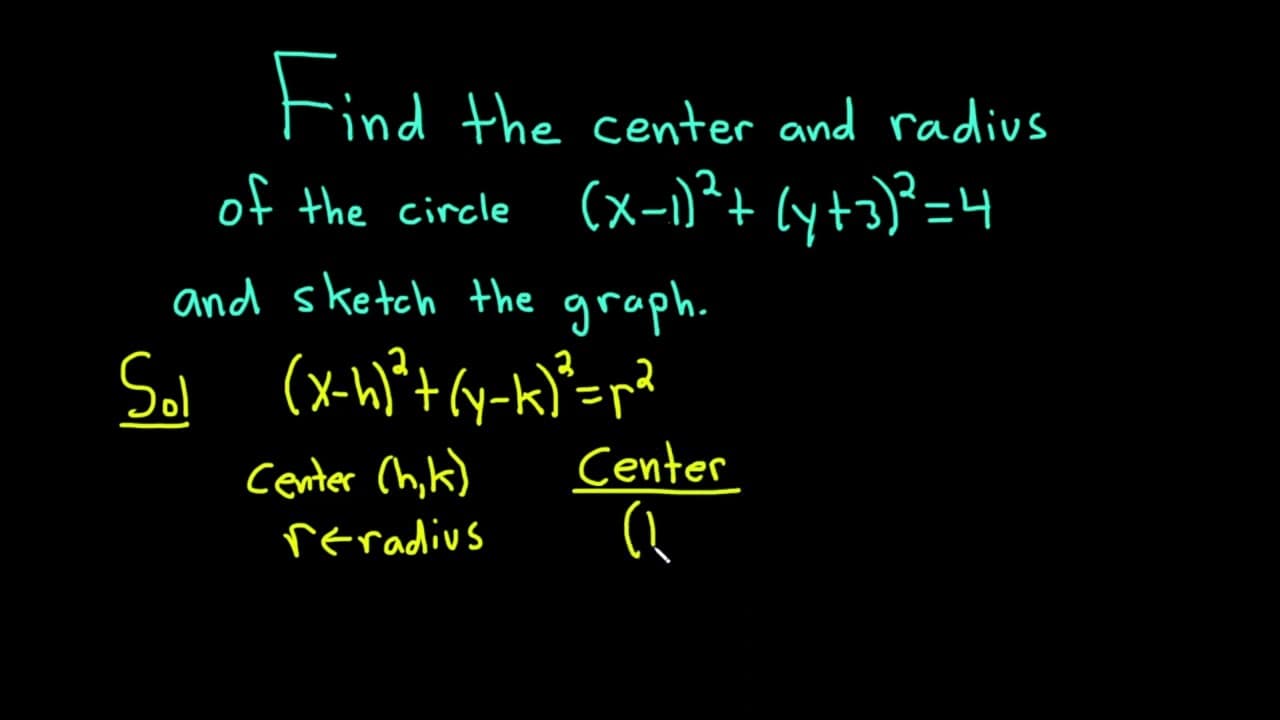 Find the center and radius
of the circle (x-1)²+ (y+3)²=4
and sketch the graph.
Sol (x-h)²+(y-k)²=r²
Center (h,k) Center
r←radius (1